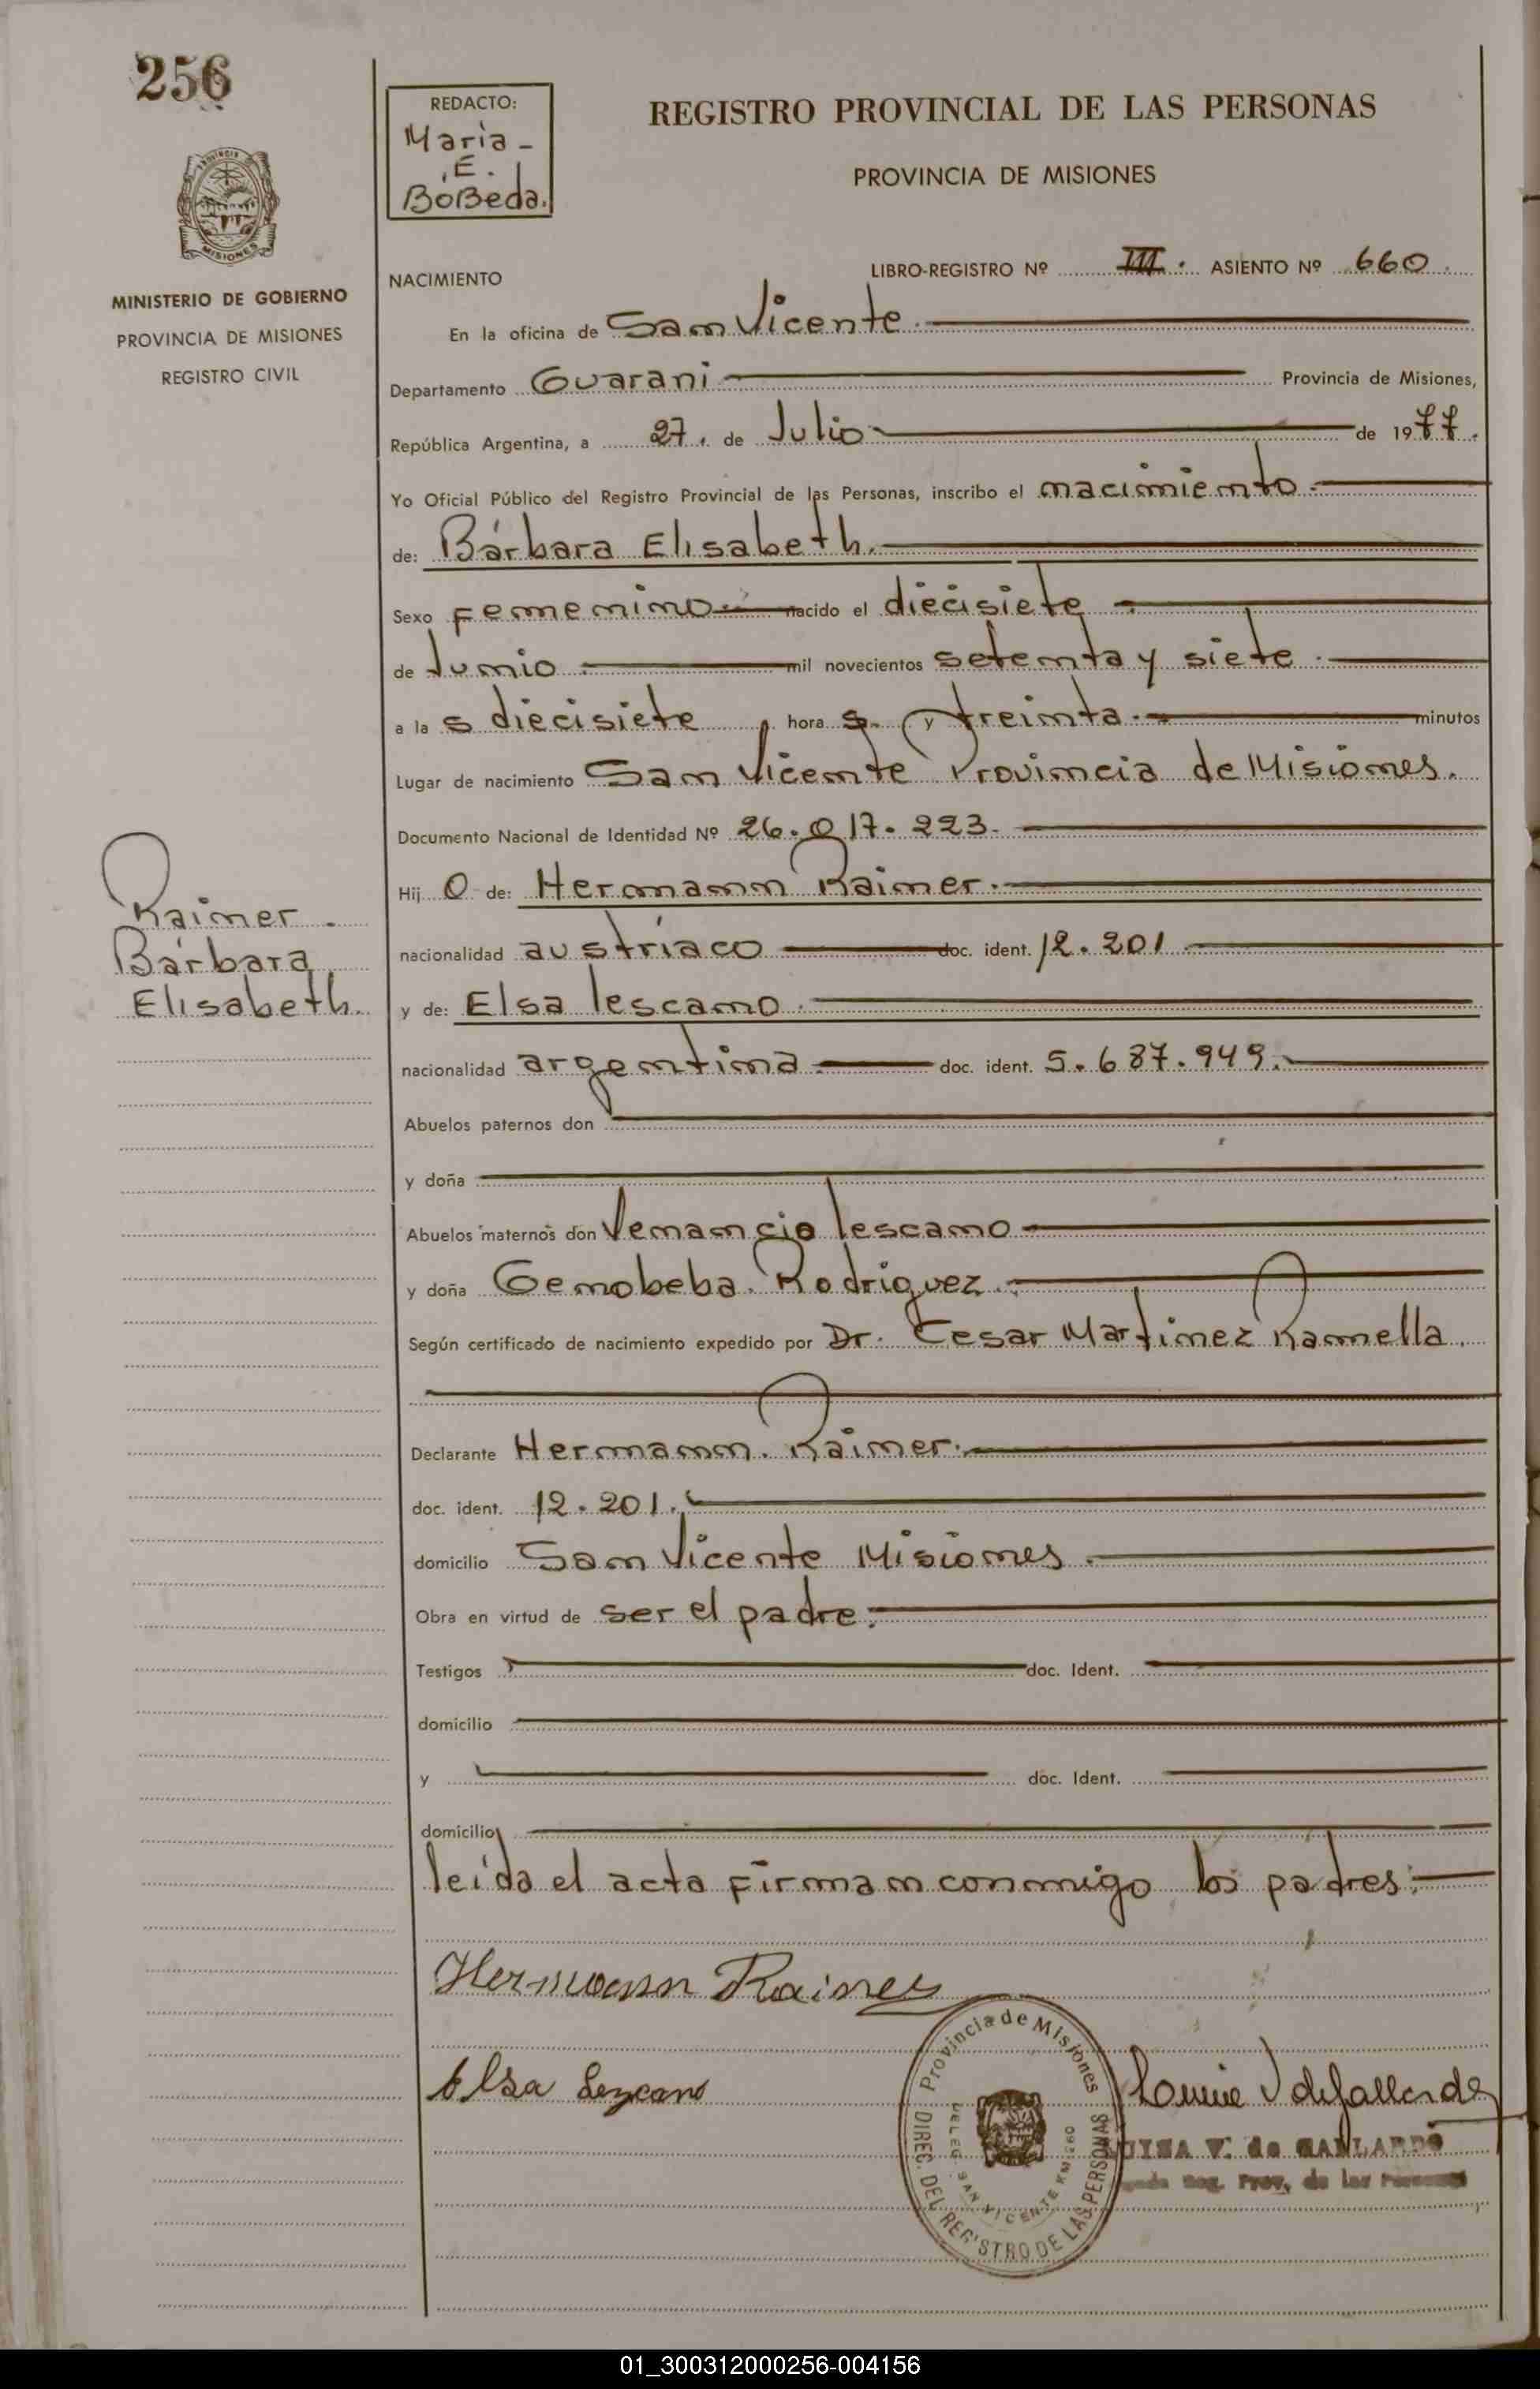 256
REDACTO:
María -
E.
BóBeda.
REGISTRO PROVINCIAL DE LAS PERSONAS
PROVINCIA DE MISIONES
PROVINCIA
MISIONES
MINISTERIO DE GOBIERNO
PROVINCIA DE MISIONES
REGISTRO CIVIL
NACIMIENTO
LIBRO-REGISTRO Nº III. ASIENTO Nº 660.
En la oficina de San Vicente.
Departamento Guarani Provincia de Misiones,
República Argentina, a 27. de Julio de 1977.
Yo Oficial Público del Registro Provincial de las Personas, inscribo el nacimiento
de: Bárbara Elisabeth.
Sexo femenino nacido el diecisiete
de Junio mil novecientos setenta y siete
a la s diecisiete hora s. y treinta minutos
Lugar de nacimiento San Vicente Provincia de Misiones.
Documento Nacional de Identidad Nº 26.017.223.
Hij o de: Hermann Rainer.
nacionalidad austríaco doc. ident. 12.201
y de: Elsa lescano
nacionalidad argentina doc. ident. 5.687.949.
Abuelos paternos don
y doña
Abuelos maternos don Venancio lescano
y doña Genobeba Rodriguez.
Según certificado de nacimiento expedido por Dr. Cesar Martinez Ramella.
Declarante Hermann. Rainer.
doc. ident. 12.201.
domicilio San Vicente Misiones.
Obra en virtud de ser el padre.
Testigos doc. Ident.
domicilio
y doc. Ident.
domicilio
leída el acta firman conmigo los padres.
Rainer.
Bárbara
Elisabeth.
Hermann Rainer
Elsa Lezcano
Provincia de Misiones
DIREC. DEL REGISTRO DE LAS PERSONAS
DELEG. SAN VICENTE KM. 260
LUISA V. de GALLARDO
Reg. Prov. de las Personas
01_300312000256-004156